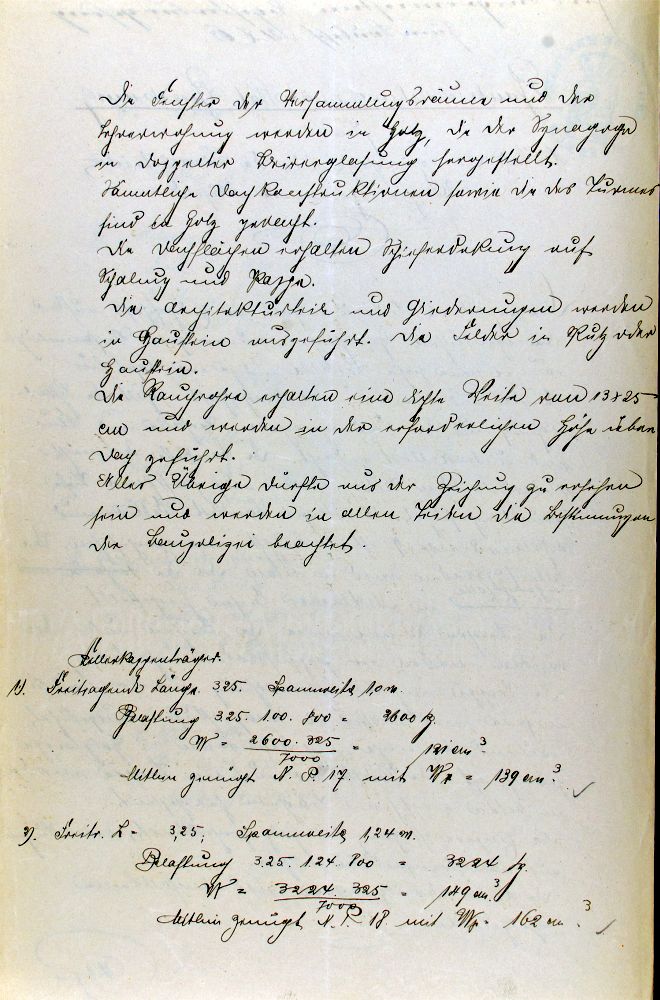 Die Fenster der Versammlungsräume und der
Lehrerwohnung werden in Holz, die der Synagoge
in doppelter Bleiverglasung hergestellt.
Sämmtliche Dachkonstruktionen sowie die des Turmes
sind in Holz gedacht.
Die Dachflächen erhalten Schieferdekung auf
Schalung und Pappe.
Die Architekturteile und Gliederungen werden
in Haustein ausgeführt. Die Felder in Putz oder
Haustein.
Die Rauchrohre erhalten eine lichte Weite von 13 x 25
cm und werden in der erforderlichen Höhe über
Dach geführt.
Alles Übrige dürfte aus der Zeichnung zu ersehen
sein und werden in allen Teilen die Bestimmungen
der Baupolizei beachtet.
Kellerkappenträger.
1). Freitragende Länge. 3.25. Spannweite 1,0 m.
Belastung 3.25. 1.00. 800 = 2600 kg.
W = 2600. 325 / 7000 = 121 cm³
Mithin genügt N. P. 17. mit Wx = 139 cm³.
2). Freitr. L = 3,25; Spannweite 1,24 m.
Belastung 3.25. 1.24. 800 = 3224 kg.
W = 3224. 325 / 7000 = 149 cm³
Mithin genügt N. P. 18. mit Wx = 162 cm³.